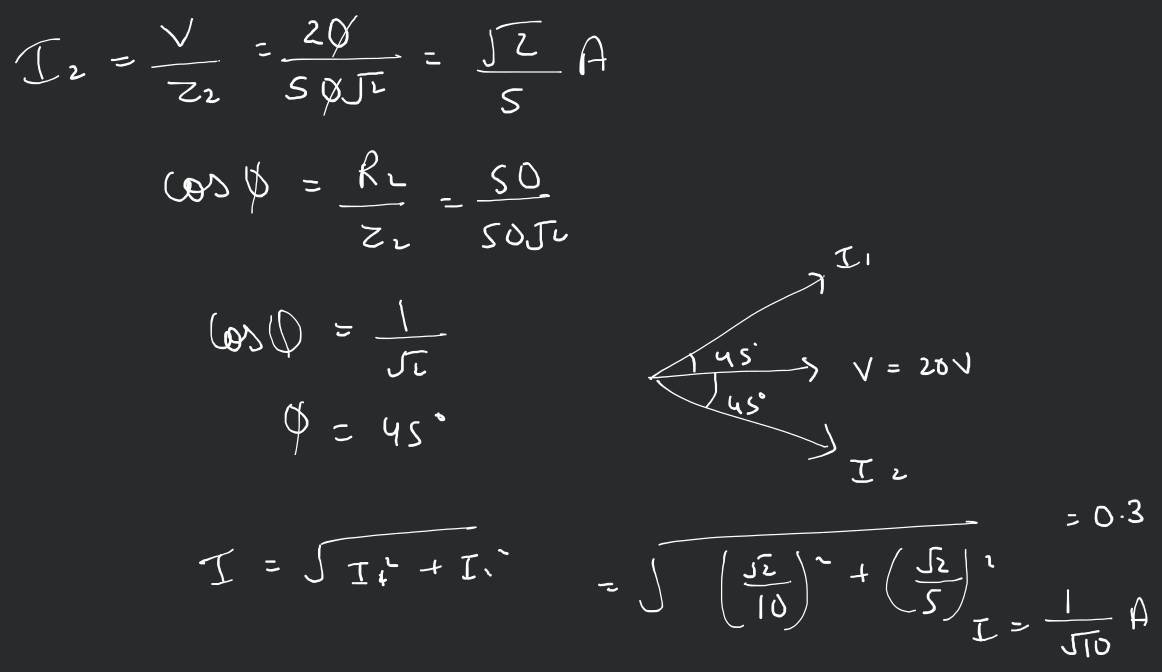 I₂ = V/Z₂ = 20/50√2 = √2/5 A
cos φ = R₂/Z₂ = 50/50√2
cos φ = 1/√2
φ = 45°
I₁
45° V = 20V
45°
I₂
I = √(I₁² + I₂²) = √((√2/10)² + (√2/5)²) = 0.3
I = 1/√10 A